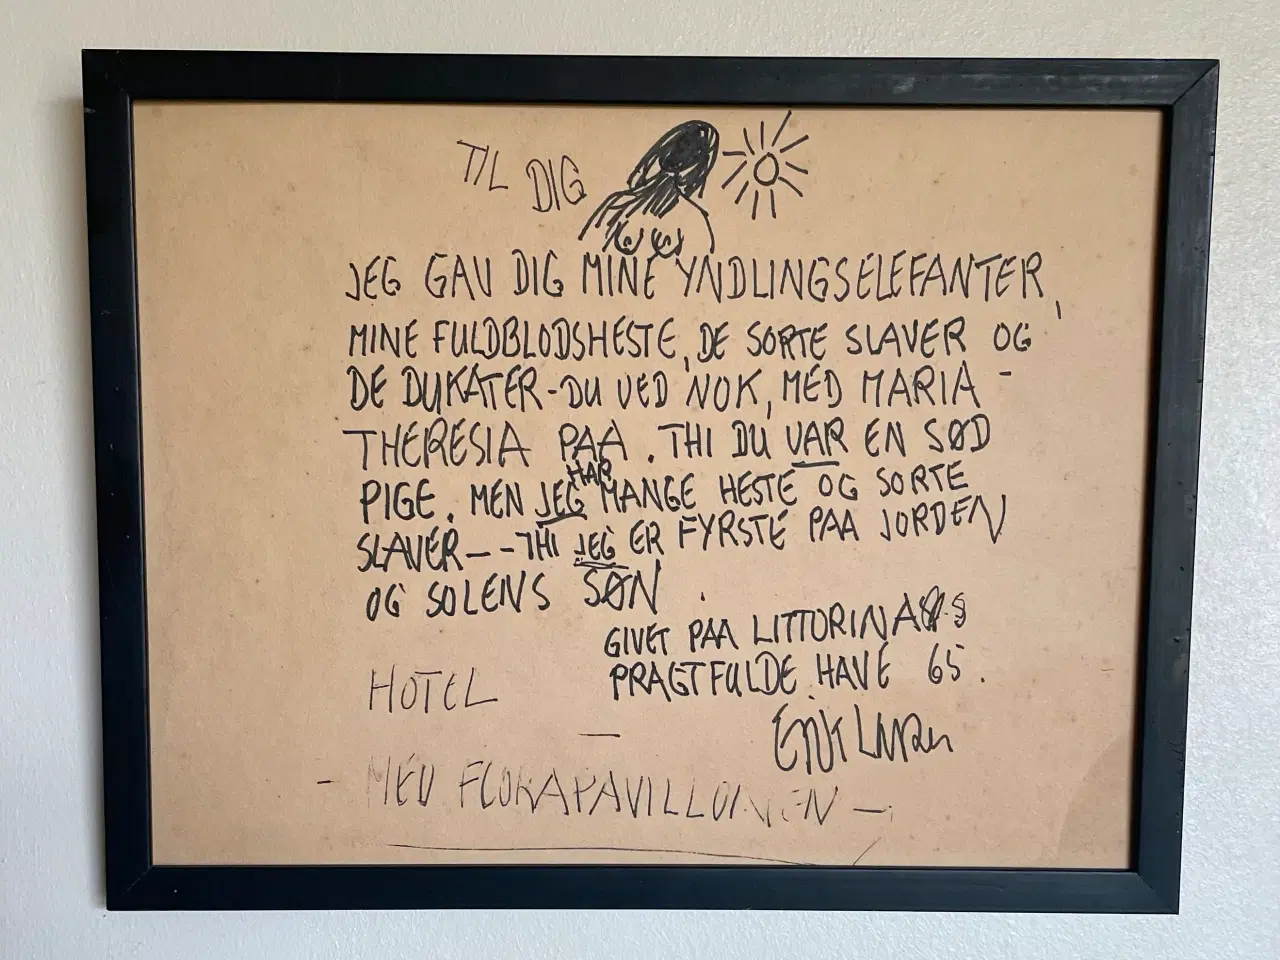 TIL DIG
JEG GAV DIG MINE YNDLINGSELEFANTER,
MINE FULDBLODSHESTE, DE SORTE SLAVER OG
DE DUKATER-DU VED NOK, MED MARIA-
THERESIA PAA. THI DU VAR EN SØD
PIGE. MEN JEG HAR MANGE HESTE OG SORTE
SLAVER---THI JEG ER FYRSTE PAA JORDEN
OG SOLENS SØN.
GIVET PAA LITTORINAS
PRAGTFULDE HAVE 65.
HOTEL
- MED FLORAPAVILLONEN -